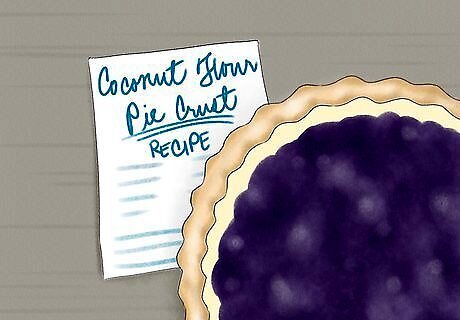 Coconut Flour
Pie Crust
RECIPE